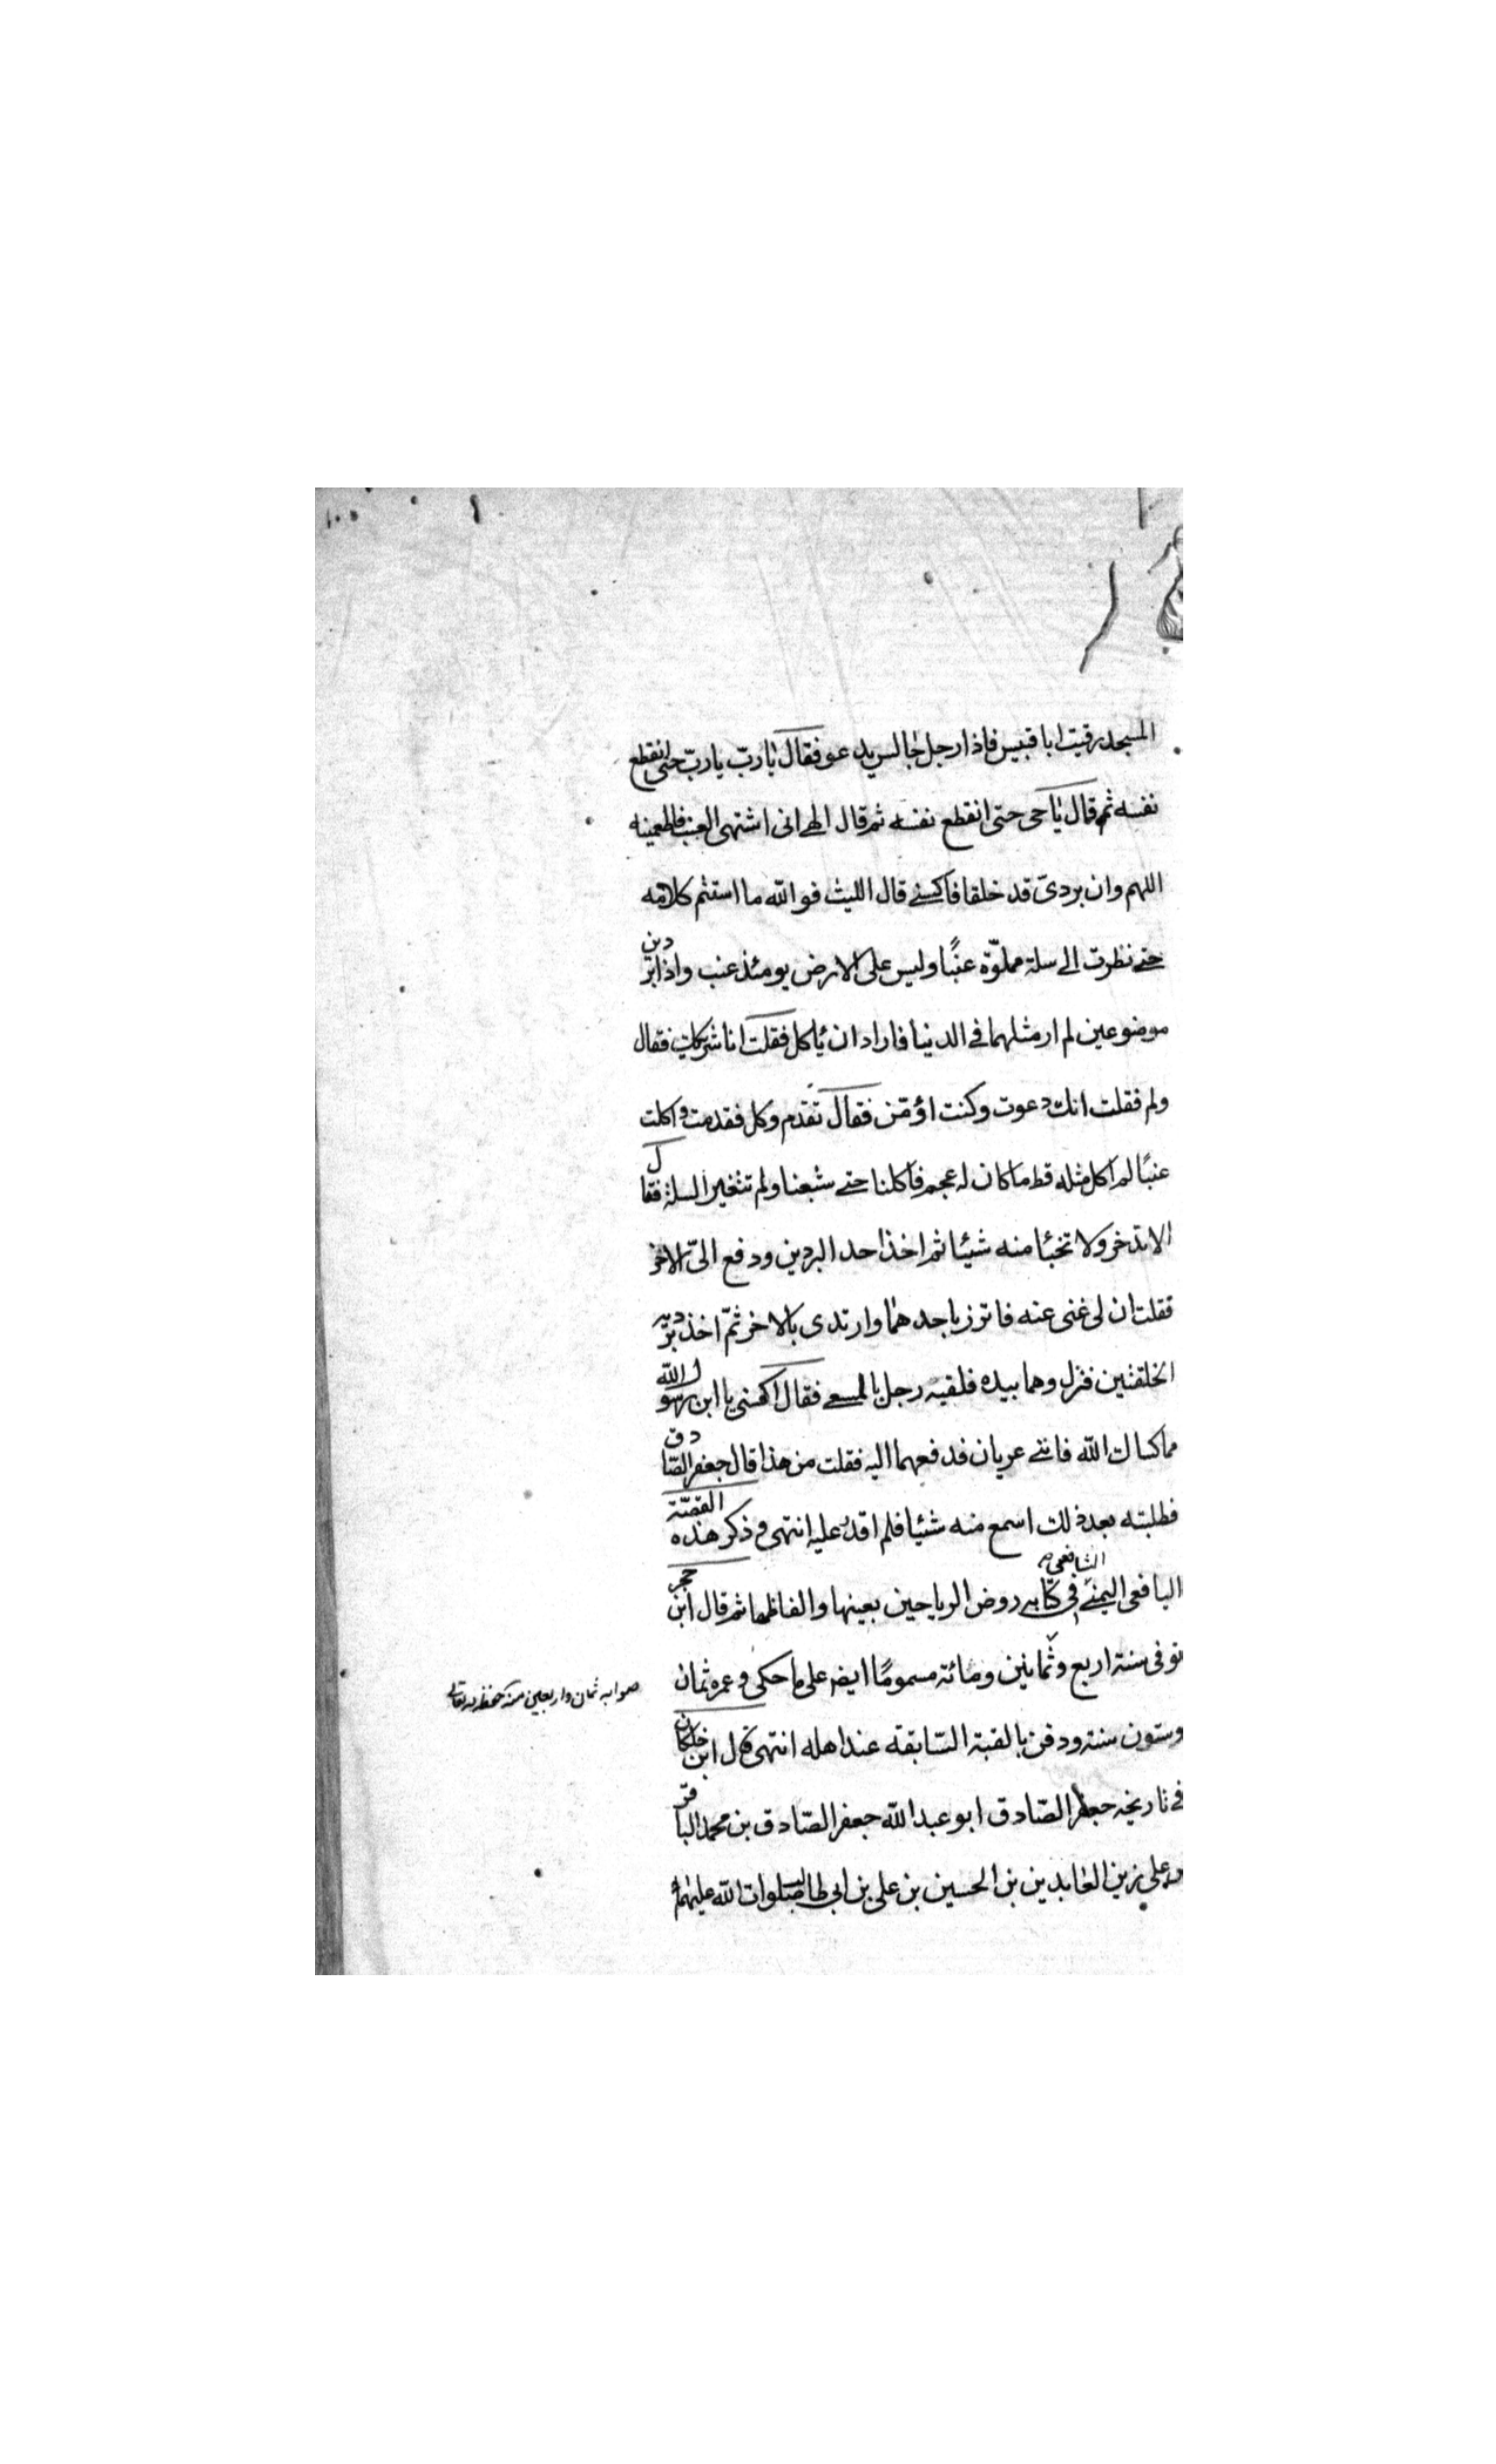 المسجد رقيت ابا قبيس فاذا رجل جالس يدعو فقال يا ربّ يا ربّ حتى انقطع
نفسه ثم قال يا حى حتى انقطع نفسه ثم قال الهى انى اشتهى العنب فاطعمينه
اللهم وان بردىّ قد خلقا فاكسنے قال الليث فو الله ما استتم كلامه
حتے نظرت الے سلة مملوّة عنبًا وليس على الارض يومئذ عنب واذا بردين
موضوعين لم ار مثلهما فے الدنيا فاراد ان ياكل فقلت انا شريكك فقال
ولم فقلت انك دعوت وكنت اؤمّن فقال تقدم وكل فقدمت واكلت
عنبًا لم اكل مثله قط ما كان له عجم فاكلنا حتے شبعنا ولم تتغير السلة فقال
لا تدخر ولا تخبئا منه شيئا ثم اخذ احد البردين ودفع الىّ الاخر
فقلت ان لى غنى عنه فاتزر باحدهما وارتدى بالاخر ثمّ اخذ برديه
الخلقتين فنزل وهما بيده فلقيه رجل بالمسعے فقال اكسنى يا ابن رسول الله
مما كساك الله فاننے عريان فدفعهما اليه فقلت من هذا قال جعفر الصّادق
فطلبته بعد ذلك اسمع منه شيئا فلم اقدر عليه انتهى و ذكر هذه القصّة
اليافعى اليمنے الشافعى فى كتابه روض الرياحين بعينها والفاظها ثم قال ابن حجر
توفى سنة اربع وثمانين ومائة مسمومًا ايضا على ما حكى و عمره ثمان
صوابه ثمان واربعين
وستون سنة ودفن بالقبة السّابقة عند اهله انتهى قال ابن خلكان
فے تاريخه جعفر الصّادق ابو عبد الله جعفر الصّادق بن محمد الباقر
بن على زين العابدين بن الحسين بن على بن ابى طالب صلوات الله عليهم